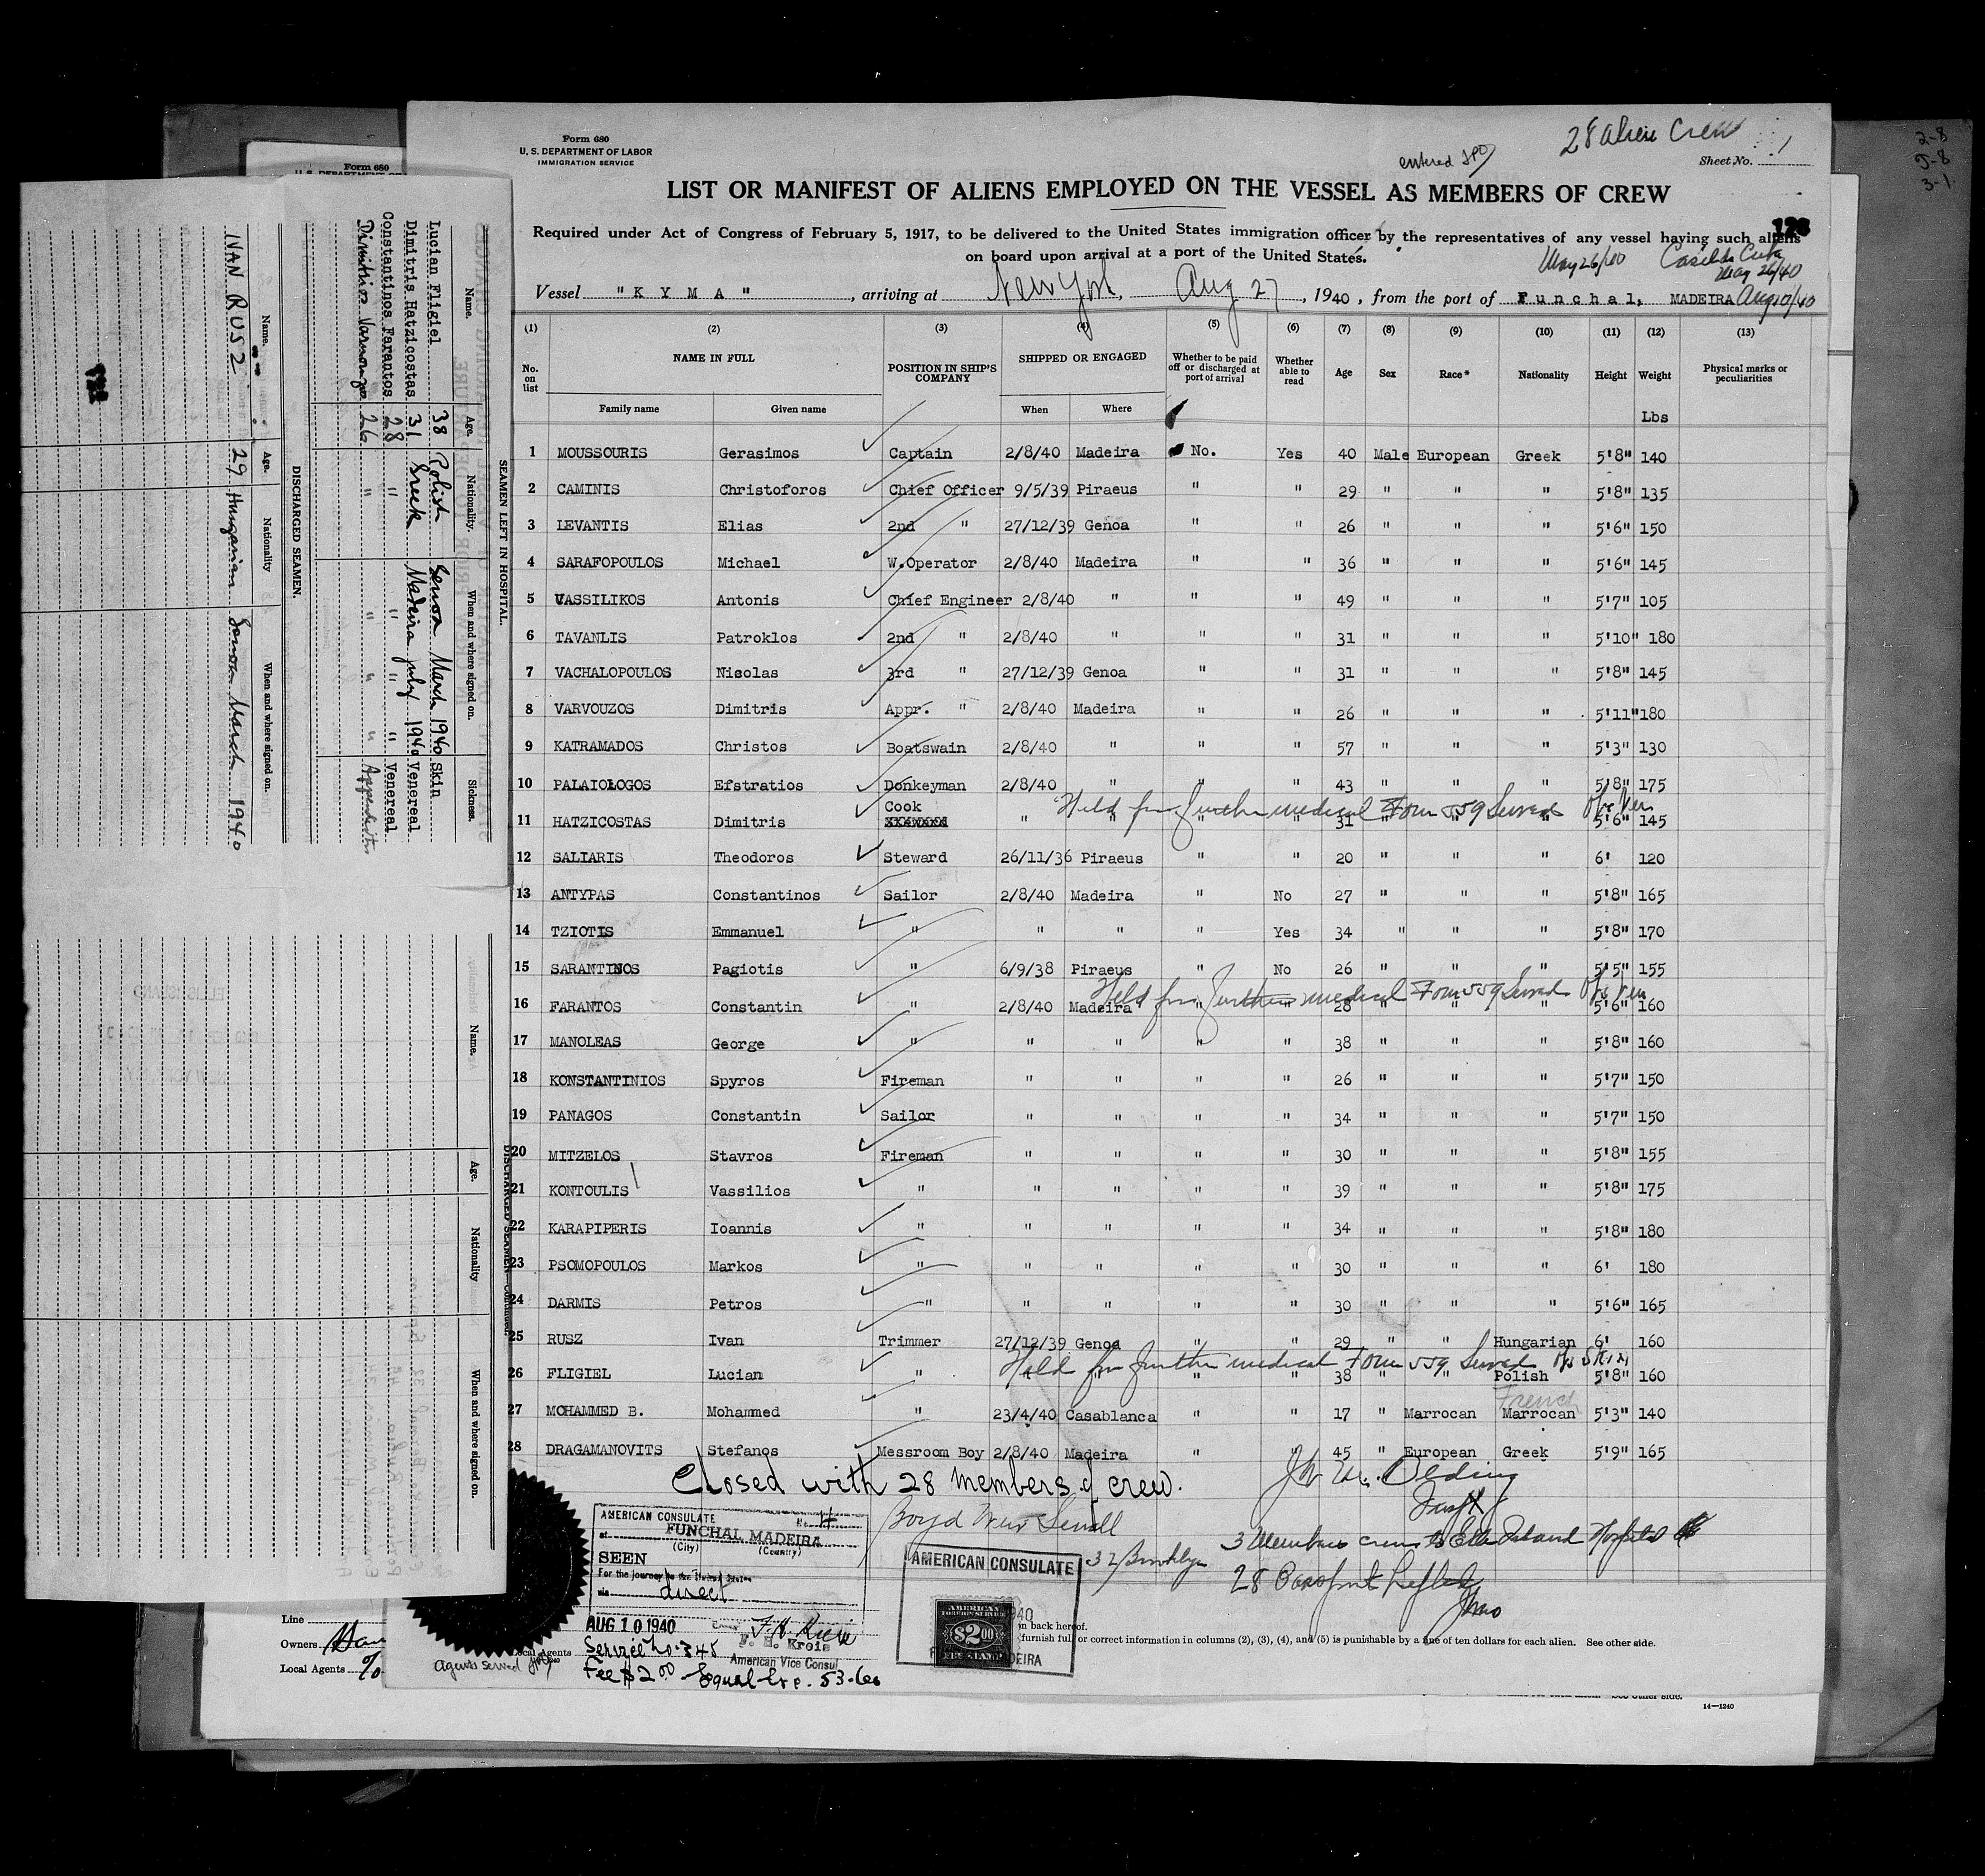 28 alien Crew
Form 680
U. S. DEPARTMENT OF LABOR
IMMIGRATION SERVICE
entered
Sheet No. 1
LIST OR MANIFEST OF ALIENS EMPLOYED ON THE VESSEL AS MEMBERS OF CREW
Required under Act of Congress of February 5, 1917, to be delivered to the United States immigration officer by the representatives of any vessel having such aliens
on board upon arrival at a port of the United States.
May 26/40 Casilda Cuba
May 26/40
Vessel "K Y M A", arriving at New York, Aug 27, 1940, from the port of Funchal, MADEIRA Aug 10/40
(1) (2) (3) (4) (5) (6) (7) (8) (9) (10) (11) (12) (13)
No. on list NAME IN FULL POSITION IN SHIP'S COMPANY SHIPPED OR ENGAGED Whether to be paid off or discharged at port of arrival Whether able to read Age Sex Race* Nationality Height Weight Physical marks or peculiarities
Family name Given name When Where Lbs
1 MOUSSOURIS Gerasimos Captain 2/8/40 Madeira No. Yes 40 Male European Greek 5'8" 140
2 CAMINIS Christoforos Chief Officer 9/5/39 Piraeus " " 29 " " " 5'8" 135
3 LEVANTIS Elias 2nd " 27/12/39 Genoa " " 26 " " " 5'6" 150
4 SARAFOPOULOS Michael W.Operator 2/8/40 Madeira " " 36 " " " 5'6" 145
5 VASSILIKOS Antonis Chief Engineer 2/8/40 " " " 49 " " " 5'7" 105
6 TAVANLIS Patroklos 2nd " 2/8/40 " " " 31 " " " 5'10" 180
7 VACHALOPOULOS Nicolas 3rd " 27/12/39 Genoa " " 31 " " " 5'8" 145
8 VARVOUZOS Dimitris Appr. " 2/8/40 Madeira " " 26 " " " 5'11" 180
9 KATRAMADOS Christos Boatswain 2/8/40 " " " 57 " " " 5'3" 130
10 PALAIOLOGOS Efstratios Donkeyman 2/8/40 " " " 43 " " " 5'8" 175
Held for further medical Form 559 Served
11 HATZICOSTAS Dimitris Cook " " " " 31 " " " 5'6" 145
12 SALIARIS Theodoros Steward 26/11/36 Piraeus " " 20 " " " 6' 120
13 ANTYPAS Constantinos Sailor 2/8/40 Madeira " No 27 " " " 5'8" 165
14 TZIOTIS Emmanuel " " " " Yes 34 " " " 5'8" 170
15 SARANTINOS Pagiotis " 6/9/38 Piraeus " No 26 " " " 5'5" 155
Held for further medical Form 559 Served
16 FARANTOS Constantin " 2/8/40 Madeira " " 28 " " " 5'6" 160
17 MANOLEAS George " " " " " 38 " " " 5'8" 160
18 KONSTANTINIOS Spyros Fireman " " " " 26 " " " 5'7" 150
19 PANAGOS Constantin Sailor " " " " 34 " " " 5'7" 150
20 MITZELOS Stavros Fireman " " " " 30 " " " 5'8" 155
21 KONTOULIS Vassilios " " " " " 39 " " " 5'8" 175
22 KARAPIPERIS Ioannis " " " " " 34 " " " 5'8" 180
23 PSOMOPOULOS Markos " " " " " 30 " " " 6' 180
24 DARMIS Petros " " " " " 30 " " " 5'6" 165
25 RUSZ Ivan Trimmer 27/12/39 Genoa " " 29 " " Hungarian 6' 160
Held for further medical Form 559 Served Skin
26 FLIGIEL Lucian " " " " " 38 " " Polish 5'8" 160
French
27 MOHAMMED B. Mohammed " 23/4/40 Casablanca " " 17 " Marrocan Marrocan 5'3" 140
28 DRAGAMANOVITS Stefanos Messroom Boy 2/8/40 Madeira " 45 " European Greek 5'9" 165
Closed with 28 members of crew.
Boyd Weir Sewell
32 Brooklyn
3 Members crew to Ellis Island Hospital
28
AMERICAN CONSULATE No. 4
at FUNCHAL, MADEIRA
(City) (Country)
SEEN
For the journey to the United States
via direct
AUG 10 1940
F. H. Kreis
American Vice Consul
Service No. 345
Fee $2.00 Equal Esc. 53.60
AMERICAN CONSULATE
AMERICAN
FOREIGN SERVICE
$2.00
FEE STAMP
n back hereof.
furnish full or correct information in columns (2), (3), (4), and (5) is punishable by a fine of ten dollars for each alien. See other side.
14—1240
Line
Owners
Local Agents
Agents served
Form 680
SEAMEN LEFT IN HOSPITAL.
Name. Age. Nationality. When and where signed on. Sickness.
Lucian Fligiel 38 Polish Genoa March 1940 Skin
Dimitris Hatzicostas 31 Greek Madeira July 1940 Venereal
Constantinos Farantos 28 " " " " Venereal
Dimitrios 26 " " " " Appendicitis
DISCHARGED SEAMEN.
Name. Age. Nationality When and where signed on.
IVAN RUSZ 29 Hungarian Genoa March 1940
DISCHARGED SEAMEN—Continued.
Name. Age. Nationality When and where signed on.
2-8
J-8
3-1